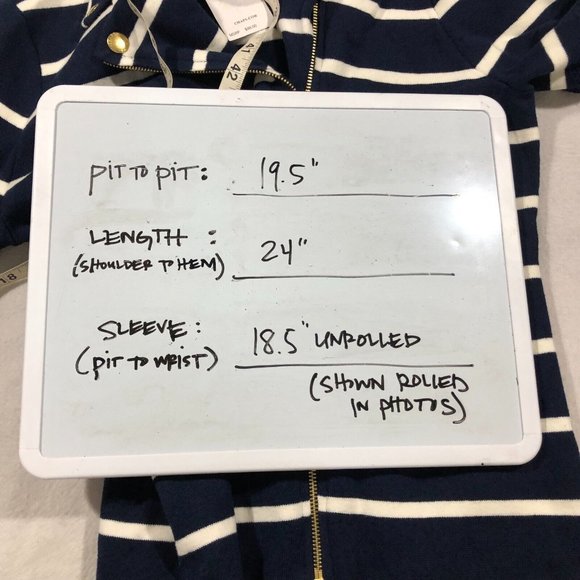 CHAPS.COM
MSRP $89.50
41 42
PIT TO PIT: 19.5"
LENGTH: 24"
(SHOULDER TO HEM)
18
SLEEVE: 18.5" UNROLLED
(PIT TO WRIST)
(SHOWN ROLLED
IN PHOTOS)